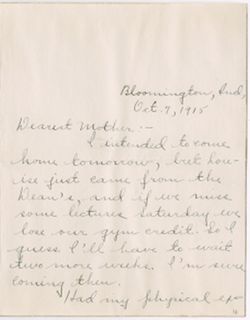 Bloomington, Ind,
Oct. 7, 1915
Dearest Mother:-
I intended to come
home tomorrow, but
just came from the
Dean's, and if we miss
some lectures Saturday we
lose our gym credit. So I
guess I'll have to wait
two more weeks. I'm sure
coming then.
Had my physical ex-